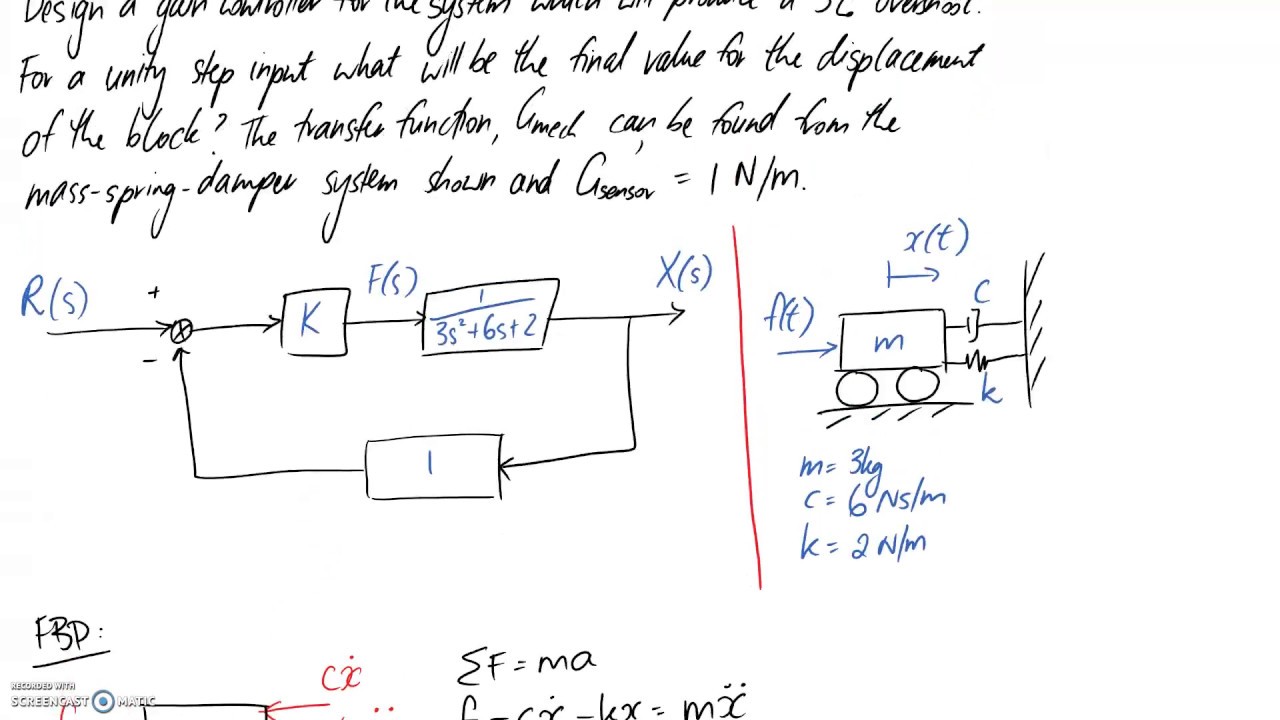 Design a gain controller for the system which will produce a 5% overshoot.
For a unity step input what will be the final value for the displacement
of the block? The transfer function, Gmech, can be found from the
mass-spring-damper system shown and Gsensor = 1 N/m.
R(s)
+
−
K
F(s)
1
3s²+6s+2
X(s)
1
x(t)
f(t)
m
c
k
m = 3kg
c = 6 Ns/m
k = 2 N/m
FBD:
cẋ
ΣF = ma
f - cẋ - kx = mẍ
RECORDED WITH
SCREENCAST MATIC